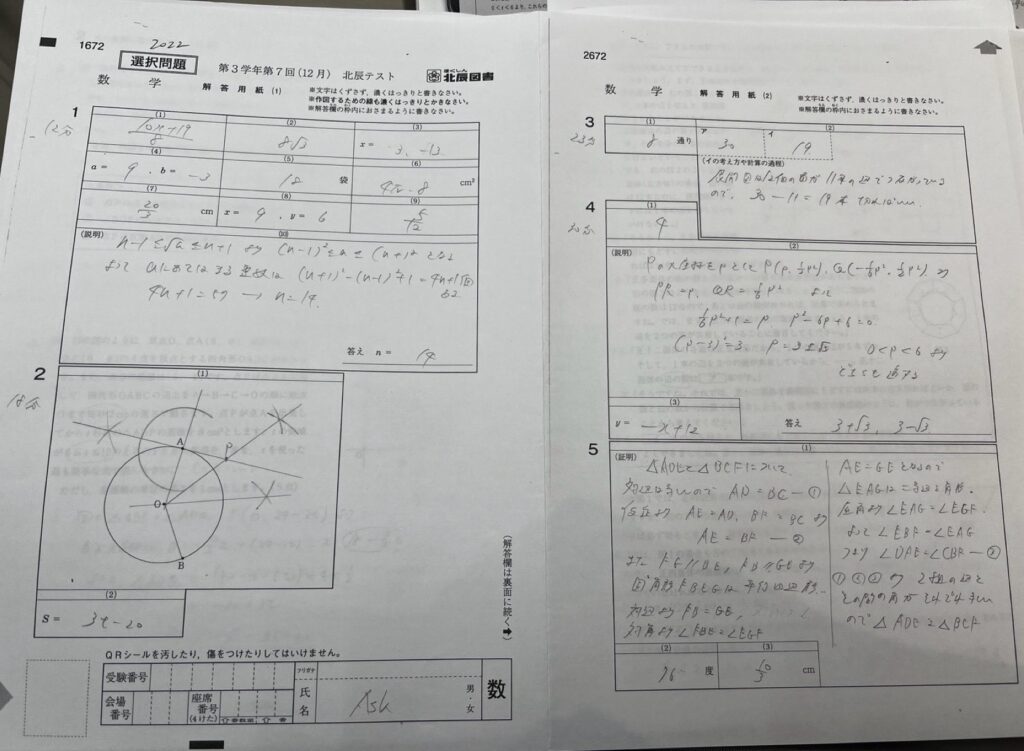 1672
2022
選択問題
第3学年第7回(12月) 北辰テスト
ほくしん
北辰図書
数 学
解 答 用 紙 (1)
※文字はくずさず,濃くはっきりと書きなさい。
※作図するための線も濃くはっきりとかきなさい。
※解答欄の枠内におさまるように書きなさい。
1
12分
(1) (2) (3)
10x+19
8
8√3
x= 3, -13
(4) (5) (6)
a= 9 , b= -3
18 袋
cm²
(7) (8) (9)
20
3
cm
x= 9 , y= 6
5
12
(10)
(説明)
n-1≦√a≦n+1 より (n-1)²≦a≦(n+1)² となる
(n+1)²-(n-1)²+1=4n+1個
4n+1=57 → n=14.
答え n= 14
2
18分
(1)
A
P
O
B
(2)
S= 3t-20
(解答欄は裏面に続く➡)
QRシールを汚したり,傷をつけたりしてはいけません。
受験番号
会場番号
座席番号
(4けた)
フリガナ
氏名
Ash
男・女
数
2672
数 学
解 答 用 紙 (2)
※文字はくずさず,濃くはっきりと書きなさい。
※作図するための線も濃くはっきりとかきなさい。
※解答欄の枠内におさまるように書きなさい。
3
23分
(1)
8 通り
(2)
ア 30
イ 19
(イの考え方や計算の過程)
展開図は12個の面が11本の辺でつながっている
ので, 30-11=19本 切ればいい.
4
(1)
4
(2)
(説明)
Pのx座標をpとして P(p, 1/6p²), Q(-1/6p², 1/6p²) より
PR=p, QR=1/6p² よって
1/6p²+1=p p²-6p+6=0
(p-3)²=3 p=3±√3 0<p<6 より
どちらも適する
答え 3+√3, 3-√3
(3)
y= -x+12
5
(1)
(証明)
△ADEと△BCFについて
対辺は等しいので AD=BC ー①
仮定より AE=AD, BF=BC より
AE=BF ー②
また FG//BE, FB//GE より
四角形FBEGは平行四辺形.
対辺より FB=GE,
対角より∠FBE=∠EGF
AE=GEとなるので
△EAGは二等辺三角形.
底角より∠EAG=∠EGF.
よって∠EBF=∠EAG
つまり ∠DAE=∠CBF ー③
①②③より 2組の辺と
その間の角がそれぞれ等しい
ので △ADE≡△BCF
(2)
76 度
(3)
cm